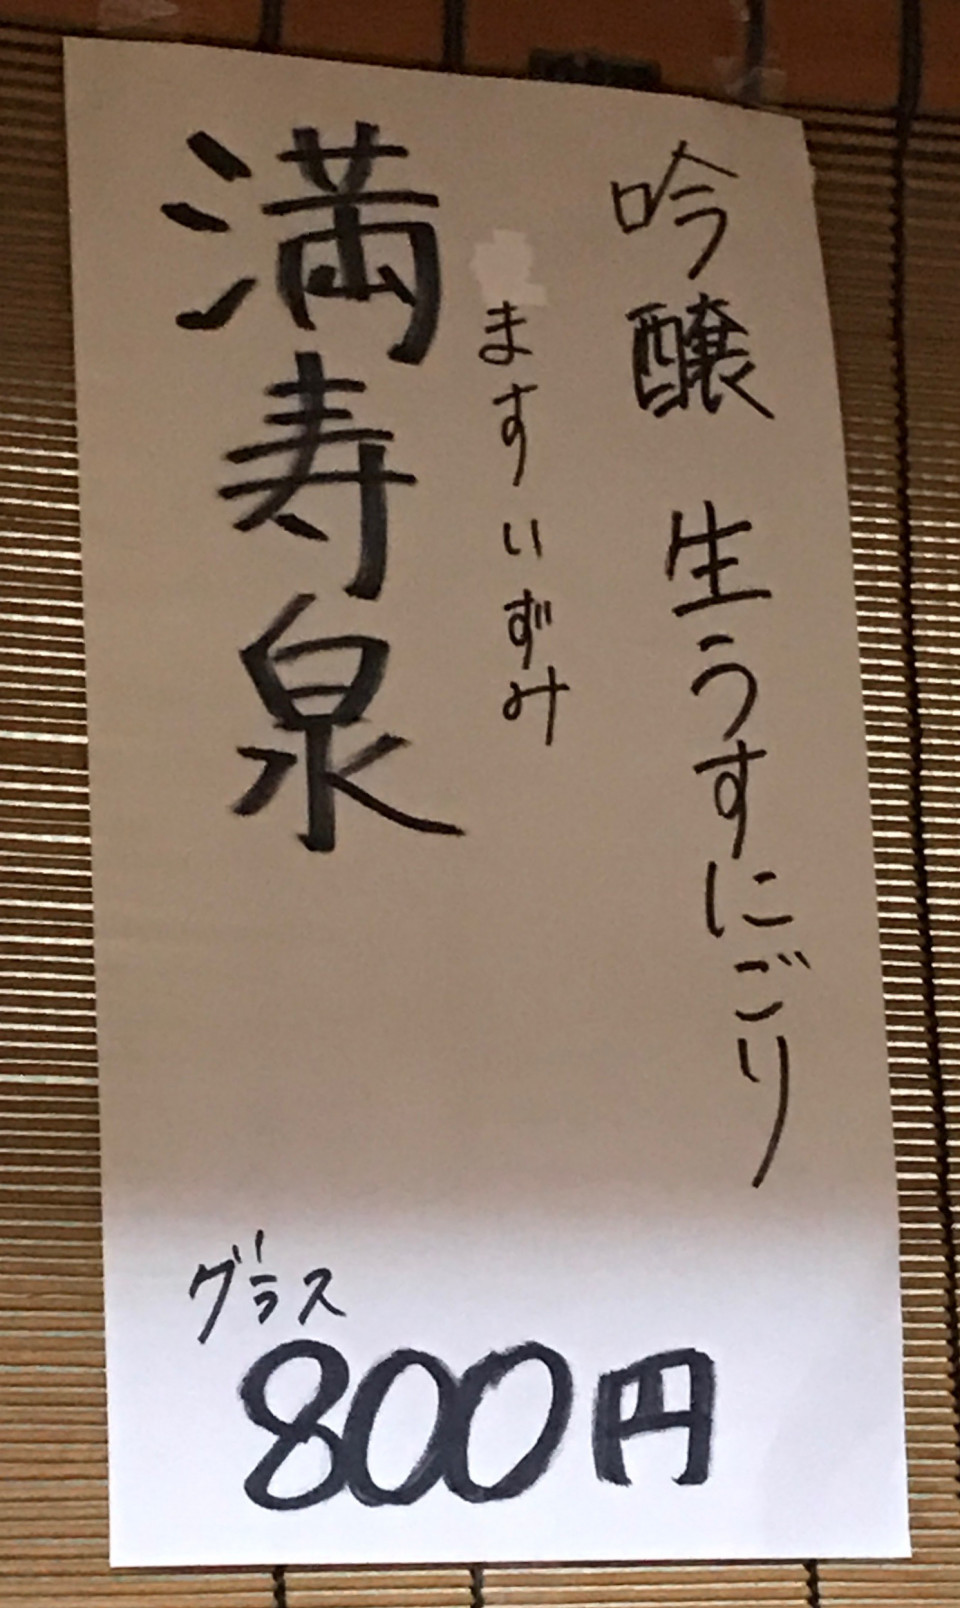 吟醸 生うすにごり
ますいずみ
満寿泉
グラス
800円